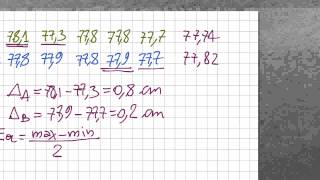 78,1 77,3 77,8 77,8 77,7 77,74
77,8 77,9 77,8 77,9 77,7 77,82
Δ_A = 78,1 - 77,3 = 0,8 cm
Δ_B = 77,9 - 77,7 = 0,2 cm
= max - min
2